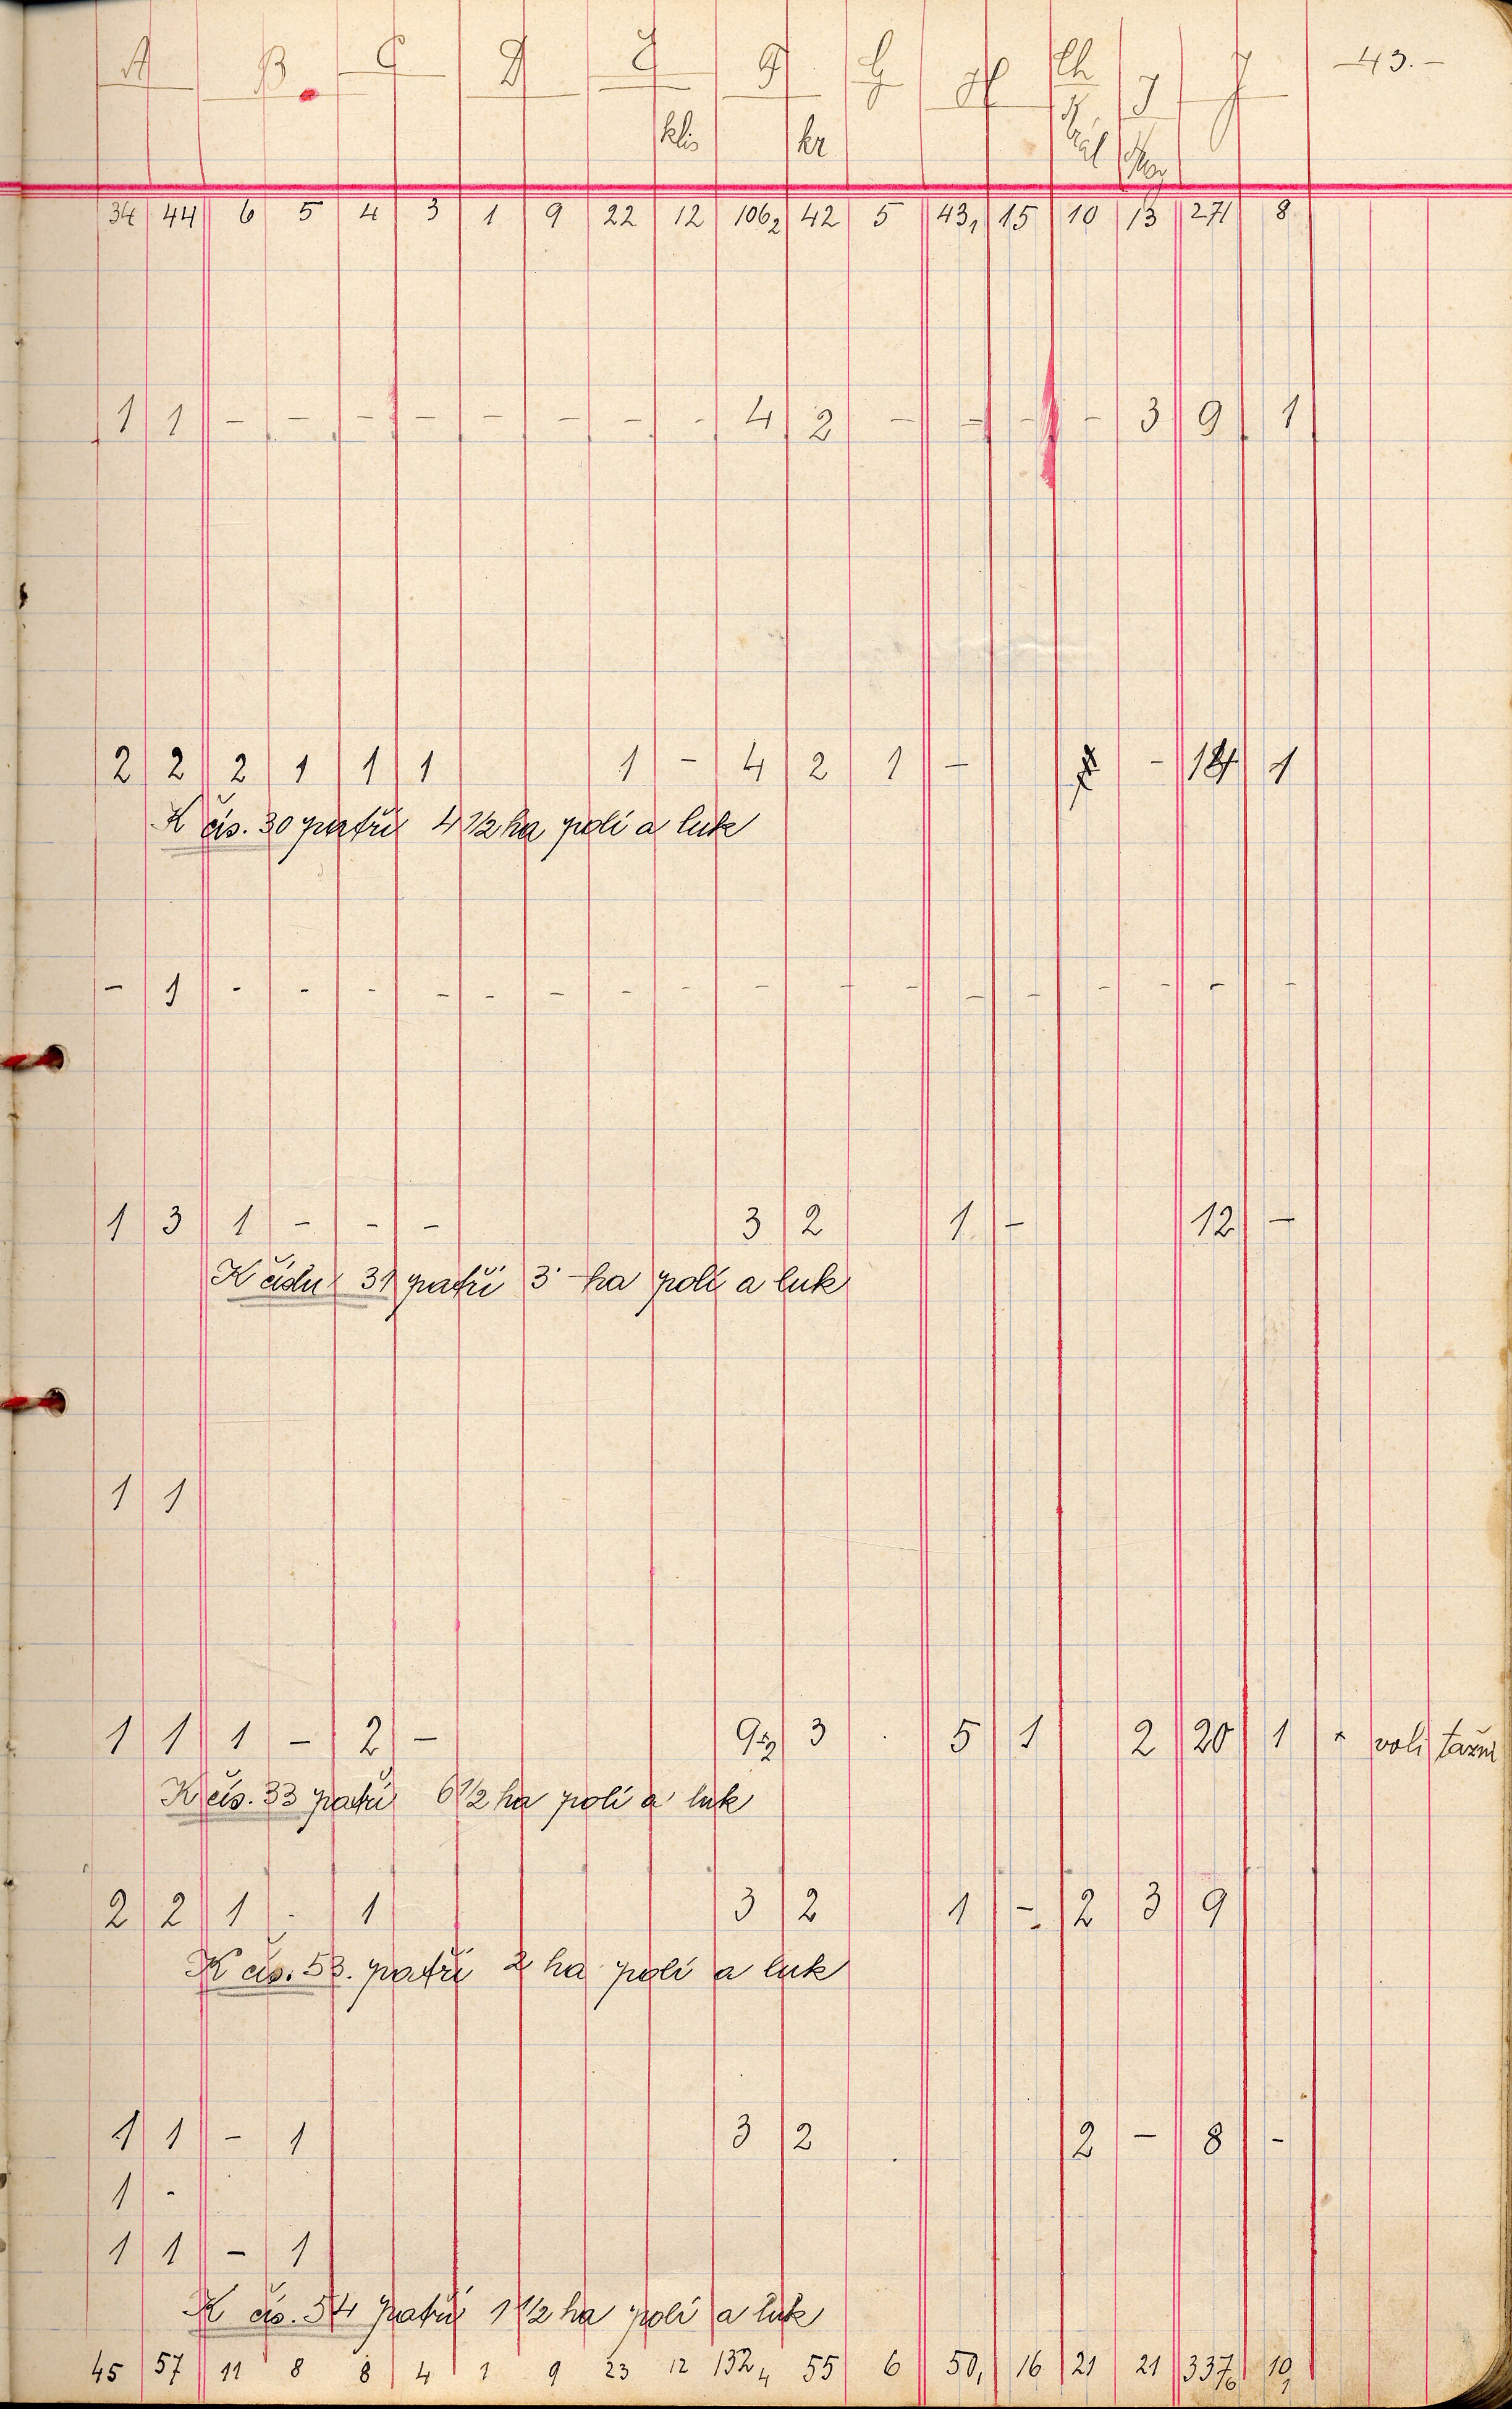 A B C D E F G H Ch I J —43.—
klis kr král
34 44 6 5 4 3 1 9 22 12 106,2 42 5 43,1 15 10 13 271 8
1 1 – – – – – – – – 4 2 – – – – 3 9 1
2 2 2 1 1 1 1 – 4 2 1 – – 1
K čís. 30 patří 4 1/2 ha polí a luk
– 1 - - - - - - - - - - - - - - - - -
1 3 1 – – – 3 2 1 – 12 –
K číslu 31 patří 3 ha polí a luk
1 1
1 1 1 – 2 – 3 5 1 2 20 1 voli tažní
K čís. 33 patří 6 1/2 ha polí a luk
2 2 1 - 1 3 2 1 – 2 3 9
K čís. 53. patří 2 ha polí a luk
1 1 – 1 3 2 2 – 8 -
1 -
1 1 – 1
K čís. 54 patří 1 1/2 ha polí a luk
45 57 11 8 8 4 1 9 23 12 132,4 55 6 50,1 16 21 21 337,6 10,1